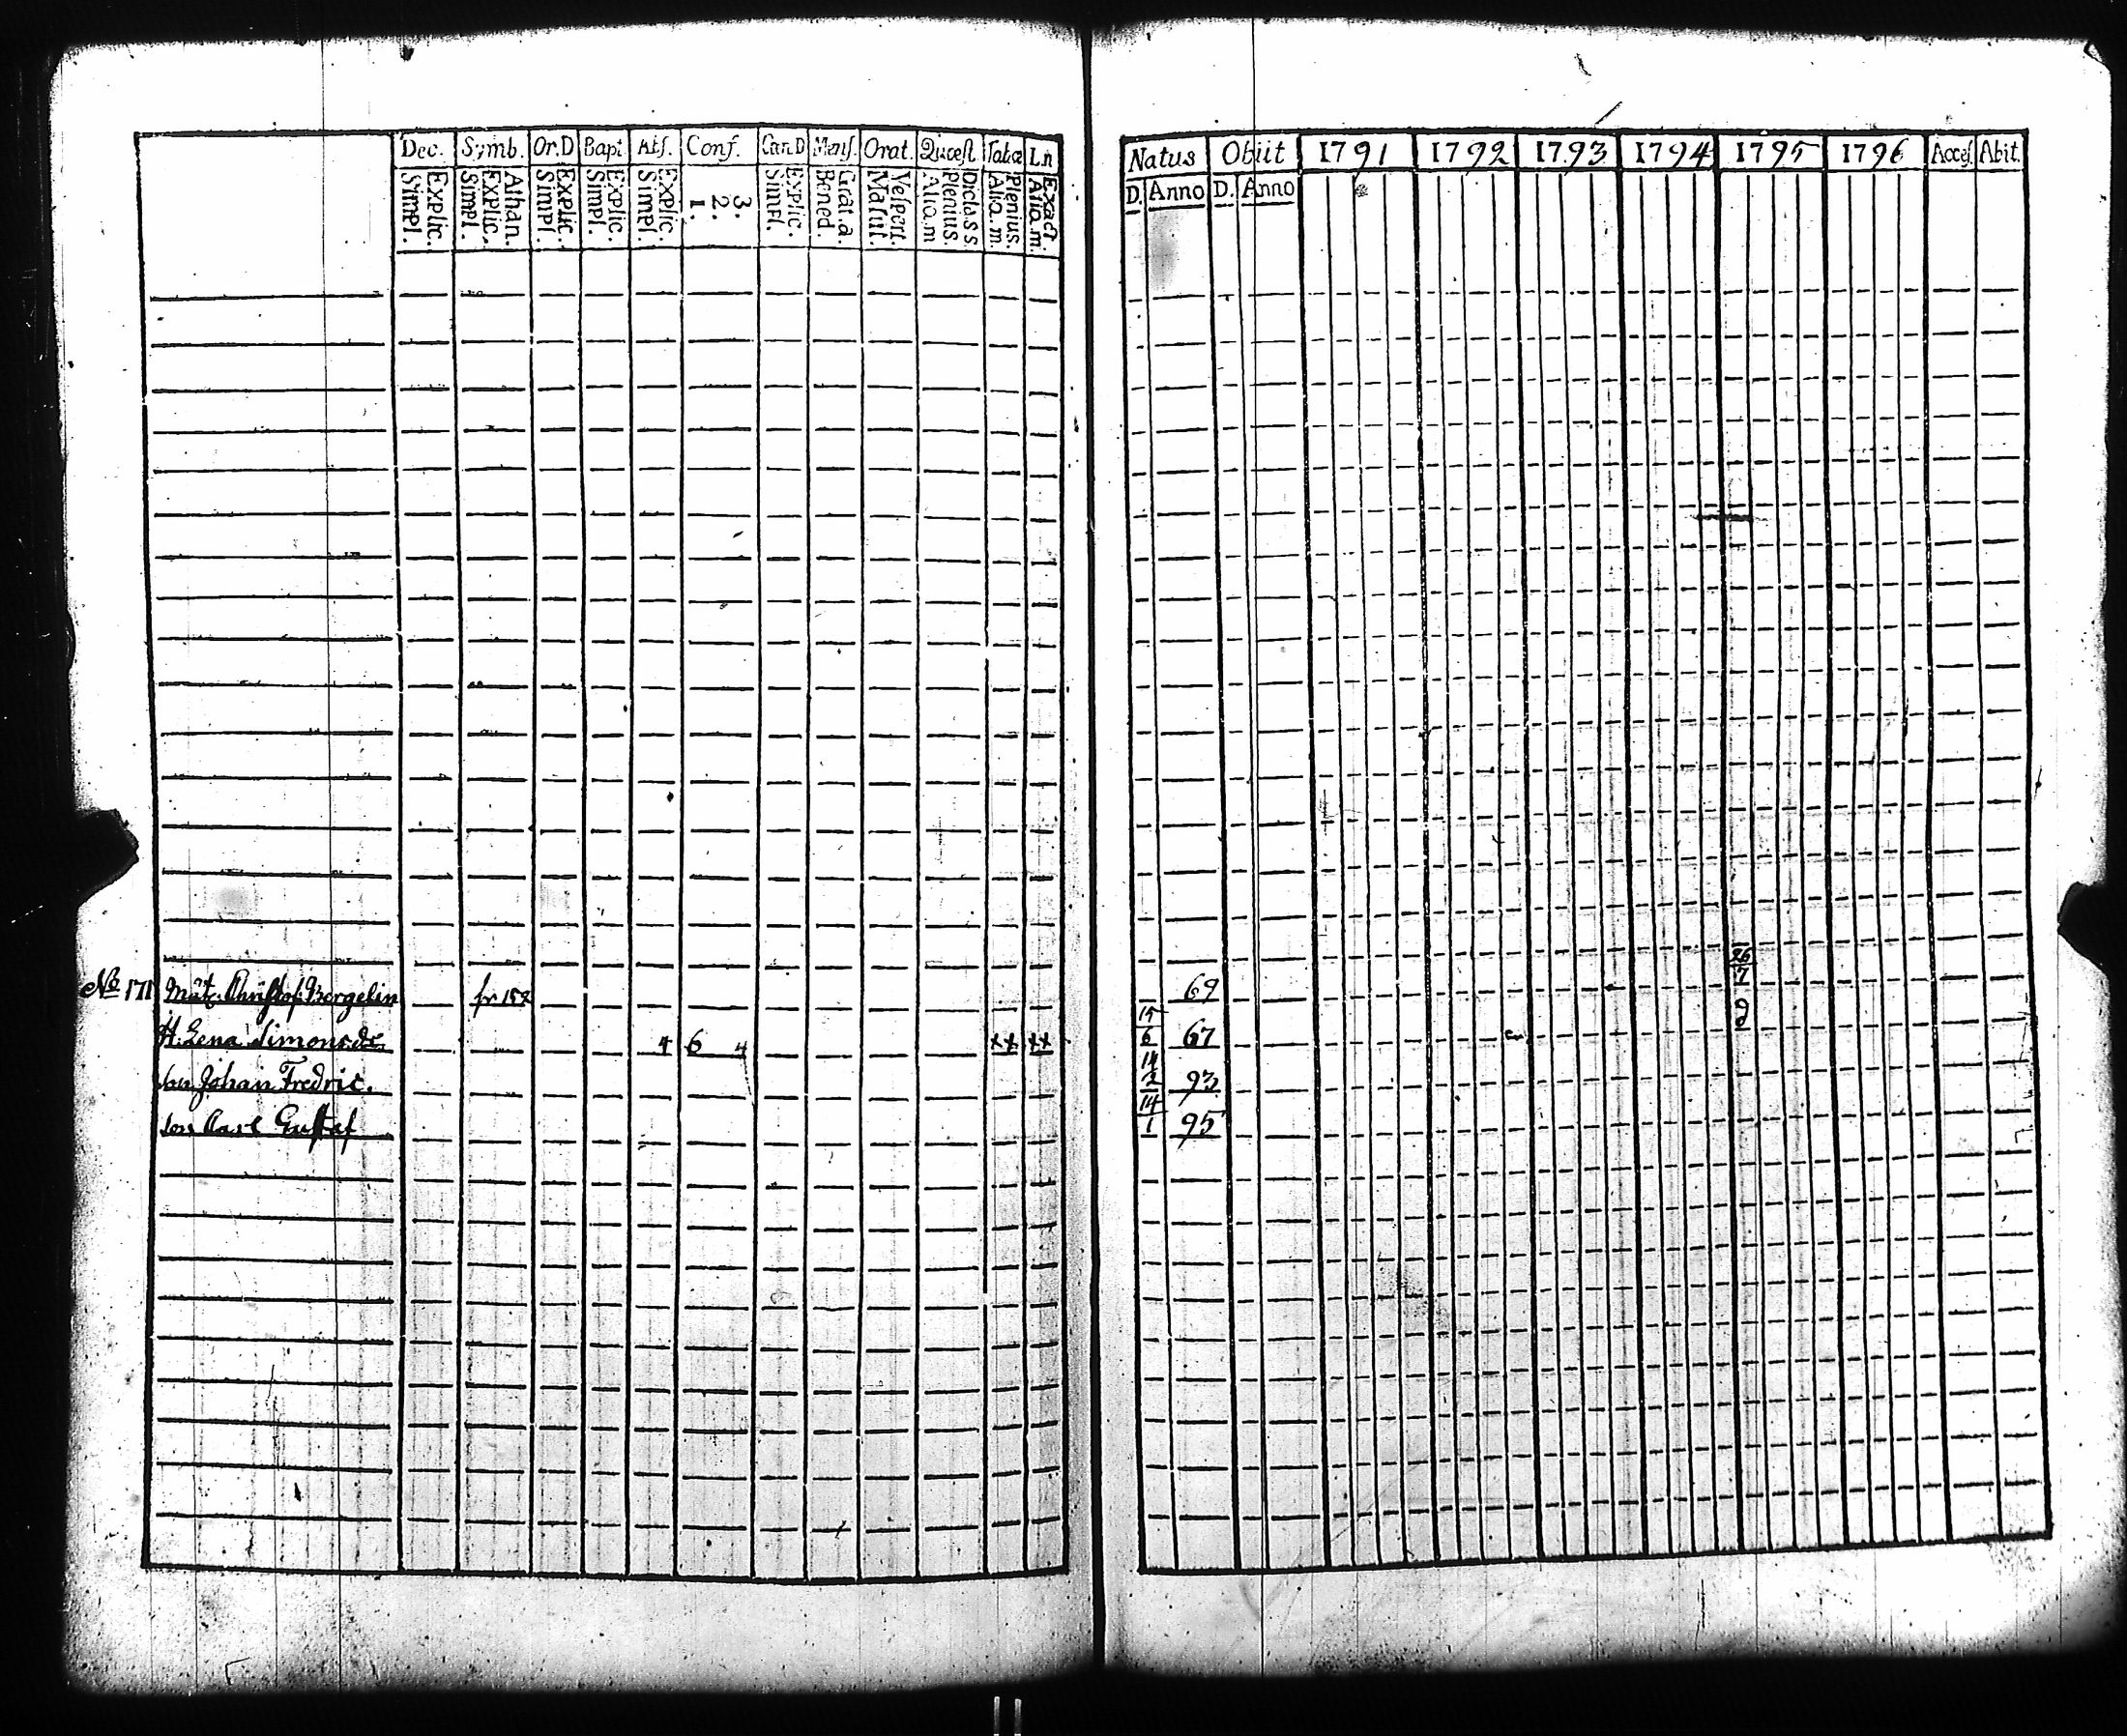 Dec. Symb. Or.D Bapt Abs. Conf. Cœn.D Mens. Orat. Quæst. Tabæ L.n
Simpl. Explic. Simpl. Explic. Athan. Simpl. Explic. Simpl. Explic. Simpl. Explic. 1. 2. 3. Simpl. Explic. Bened. Grat. a. Matut. Vespert. Alia. m Plenius. Dicta. s s. Alia. m. Plenius. Alia. m. Exact.
No 171 Christof. Borgelin fr 152
H. Lena Simonsdr 4 6 4 ×× ××
son Johan Fredric.
son Carl Gustaf
Natus Obiit 1791 1792 1793 1794 1795 1796 Acces. Abit.
D. Anno D. Anno
69 26/7
15/6 67 9
14/2 93
14/1 95